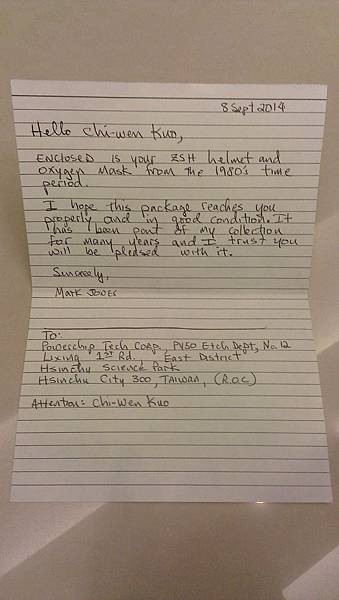 8 Sept 2014
Hello Chi-wen Kuo,
ENCLOSED is your ZSH helmet and
oxygen mask from the 1980's time
period.
I hope this package reaches you
properly and in good condition. It
has been part of my collection
for many years and I trust you
will be pleased with it.
Sincerely,
Mark Jones
To:
Powerchip Tech Corp., PV50 Etch Dept, No. 12
Lixing 1st Rd., East District
Hsinchu Science Park
Hsinchu City 300, TAIWAN, (R.O.C)
Attention: Chi-Wen Kuo